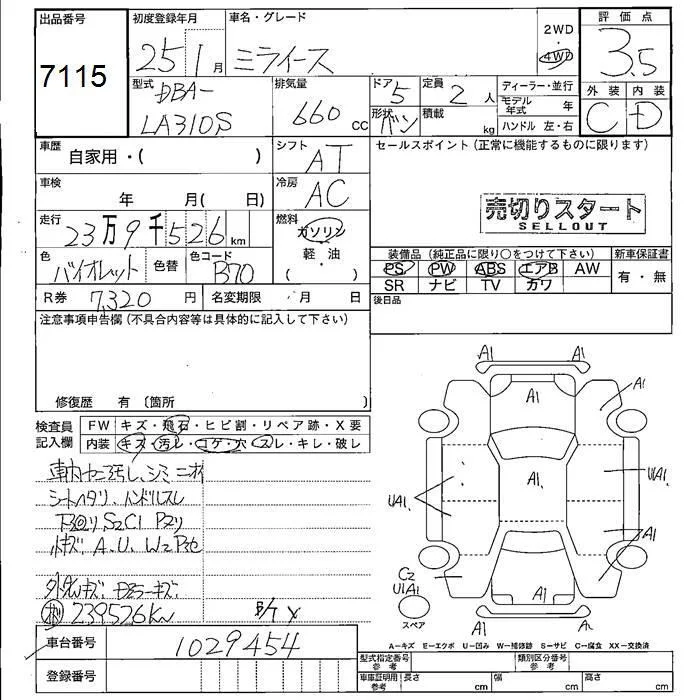 出品番号
7115
初度登録年月
25年1月
車名・グレード
ミライース
2WD
4WD
評価点
3.5
型式
DBA-
LA310S
排気量
660 cc
ドア
5
定員
2 人
形状
バン
積載
kg
ディーラー・並行
モデル年式 年
ハンドル 左・右
外装 内装
C D
車歴
自家用・( )
シフト
AT
セールスポイント(正常に機能するものに限ります)
車検
年 月( 日)
冷房
AC
売切りスタート
SELLOUT
走行
23万9千526km
燃料
ガソリン
軽・油
( )
色
バイオレット
色替
色コード
B70
装備品(純正品に限り○をつけて下さい)
新車保証書
PS PW ABS エアB AW
SR ナビ TV カワ
有・無
R券 7,320 円
名変期限 月 日
後日品
注意事項申告欄(不具合内容等は具体的に記入して下さい)
修復歴 有〔箇所 〕
検査員記入欄
FW キズ・飛石・ヒビ割・リペア跡・X要
内装 キズ・汚れ・コゲ・穴・スレ・キレ・破レ
シートヘタリ ハンドルスレ
下回り S2C1 Pアリ
A.U.W2P他
239526km
A1 A1
A1
A1
UA1
A1
UA1
A1
C2
U1A1
A1
A1 A1
スペア
A-キズ E-エクボ U-凹み W-補修跡 S-サビ C-腐食 XX-交換済
車台番号
1029454
型式指定番号参考
類別区分番号参考
登録番号
車庫証明用参考
長さ cm
幅 cm
高さ cm